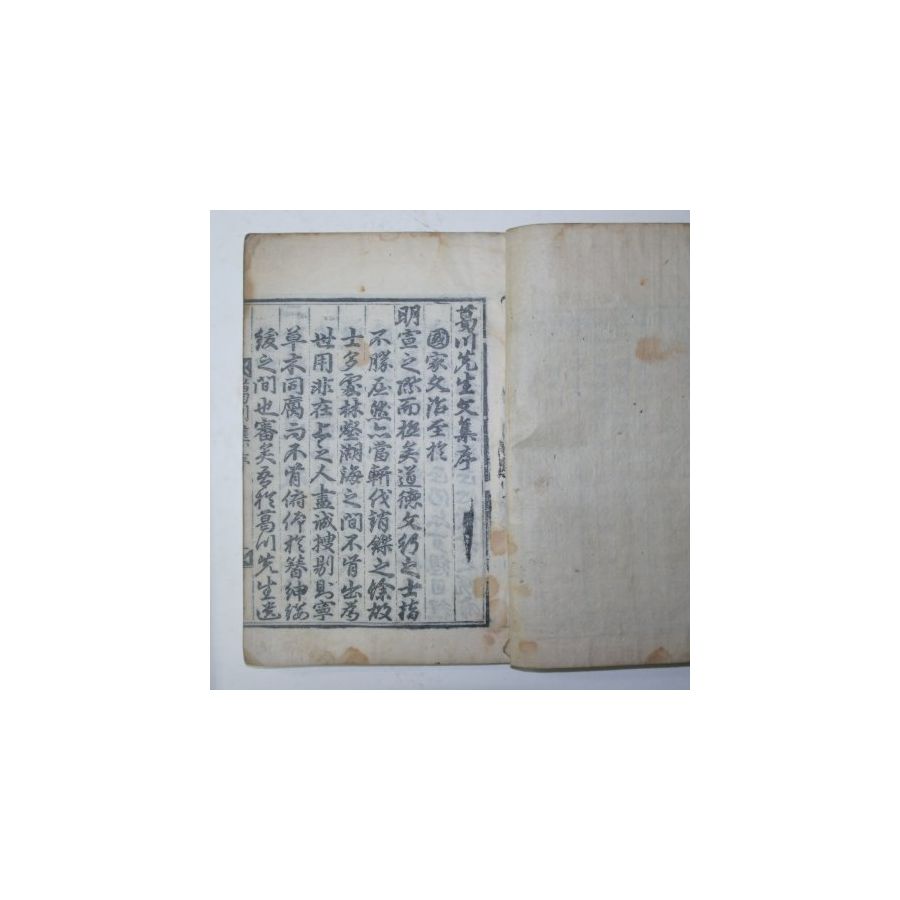 葛川先生文集序
國家文治至於
明宣之際而極矣道德文行之士指
不勝屈然亦當斬伐銷鑠之餘故
士多處林壑湖海之間不肯出為
世用非在上之人盡誠搜剔則寧
草木同腐而不肯俯仰於簪紳綏
緩之間也審矣吾於葛川先生遺
葛川集序